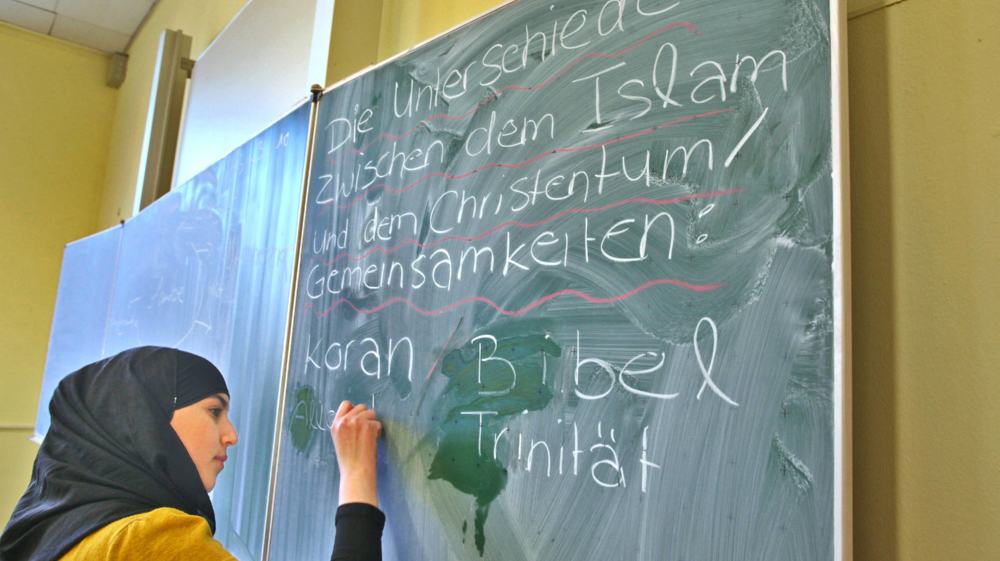 Die Unterschiede
zwischen dem Islam
und dem Christentum/
Gemeinsamkeiten:
Koran / Bibel
Trinität